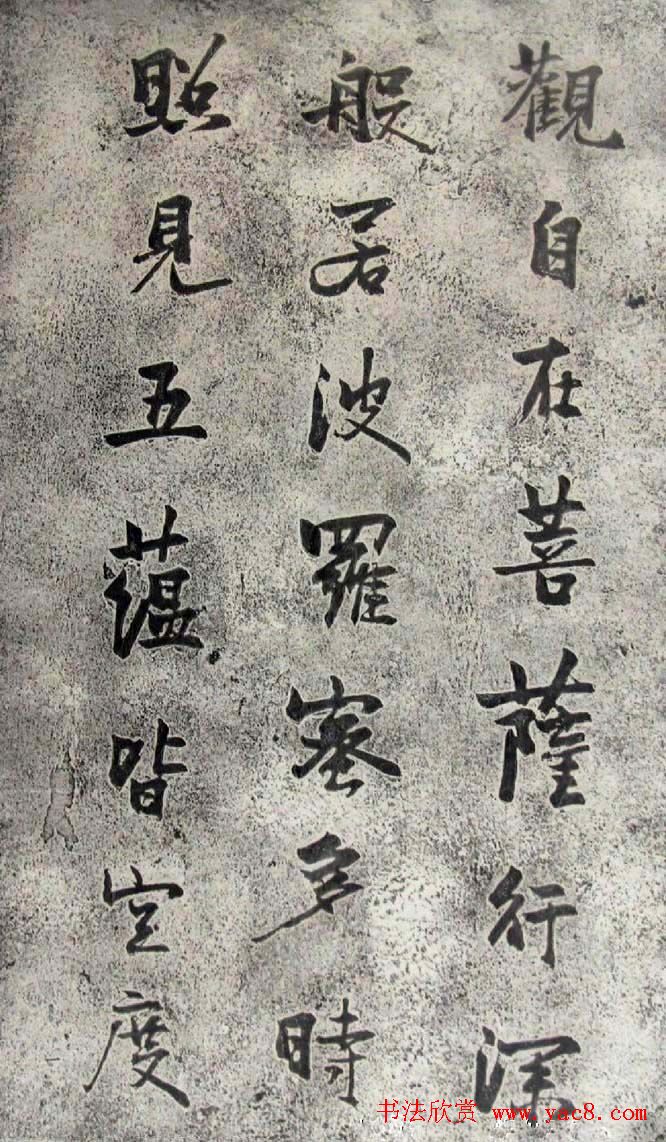 觀自在菩薩行深
般若波羅蜜多時
照見五蘊皆空度
书法欣赏
www.yac8.com